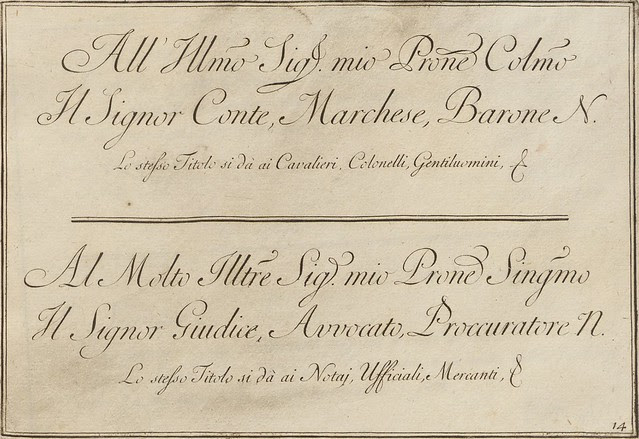 All' Illm̃o Sigr. mio Pron̄e Colm̃o
Il Signor Conte, Marchese, Barone N.
Lo stesso Titolo si dà ai Cavalieri, Colonelli, Gentiluomini, &
Al Molto Illt̃re Sigr. mio Pron̄e Sing̃mo
Il Signor Giudice, Avvocato, Proccuratore N.
Lo stesso Titolo si dà ai Notaj, Ufficiali, Mercanti, &
14